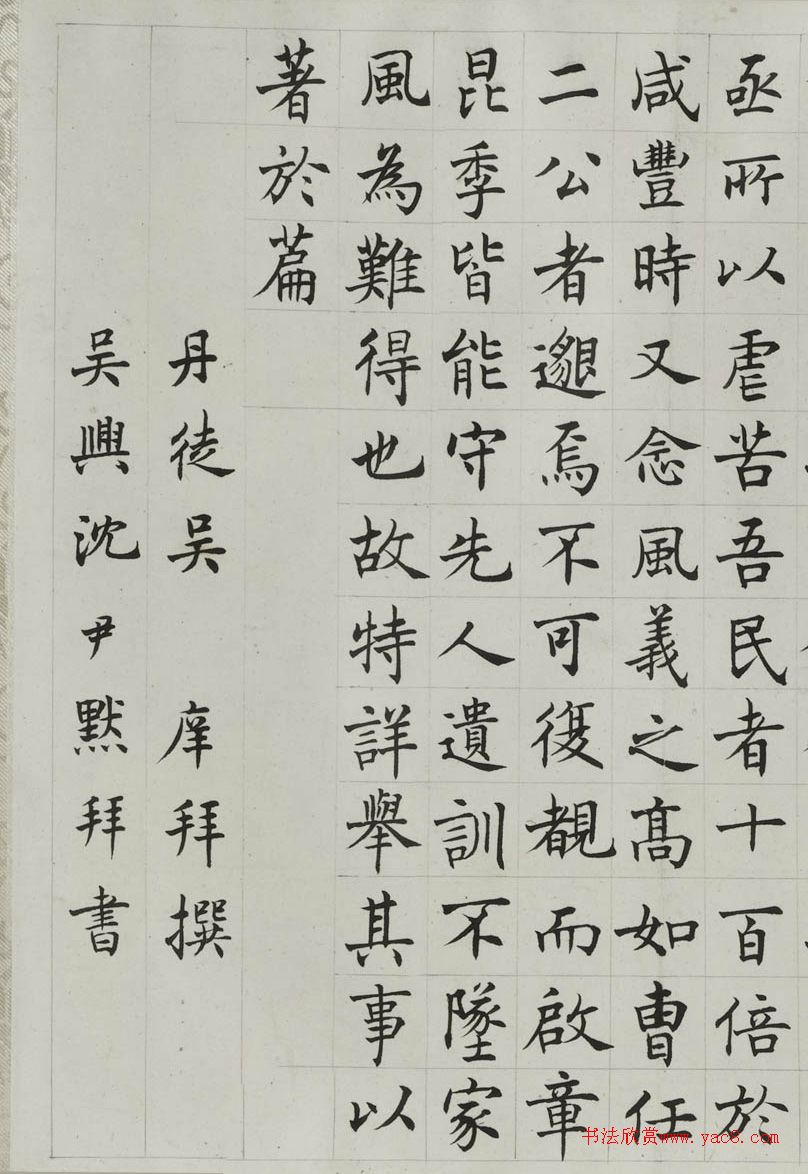 亟所以虐苦吾民者十百倍於
咸豐時又念風義之高如曹任
二公者邈焉不可復覩而啟章
昆季皆能守先人遺訓不墜家
風為難得也故特詳舉其事以
著於篇
丹徒吳庠拜撰
吳興沈尹默拜書
书法欣赏www.yac8.com